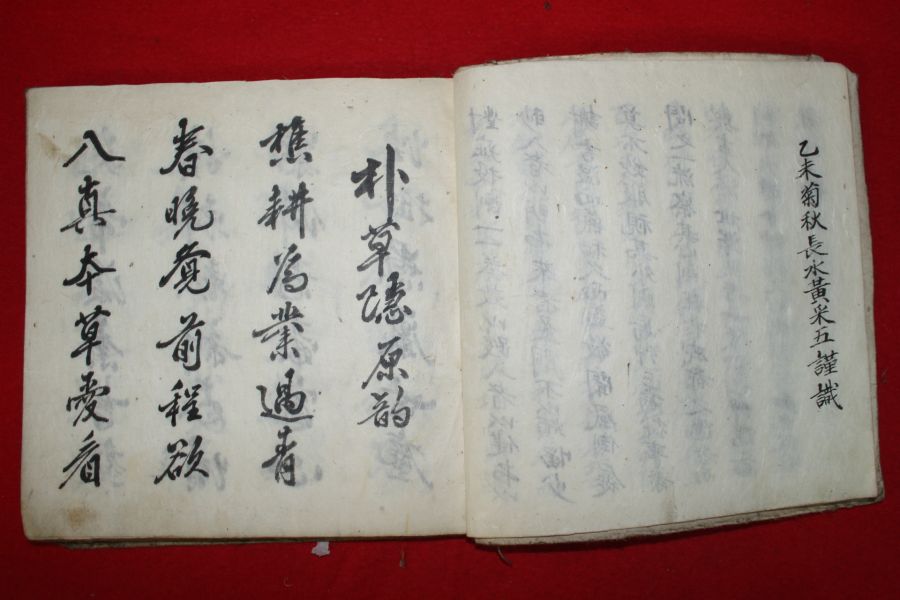 乙未菊秋長水黃采五謹識
朴草隱原韵
樵耕為業過青
春晚覺前程欲
入真本草愛看